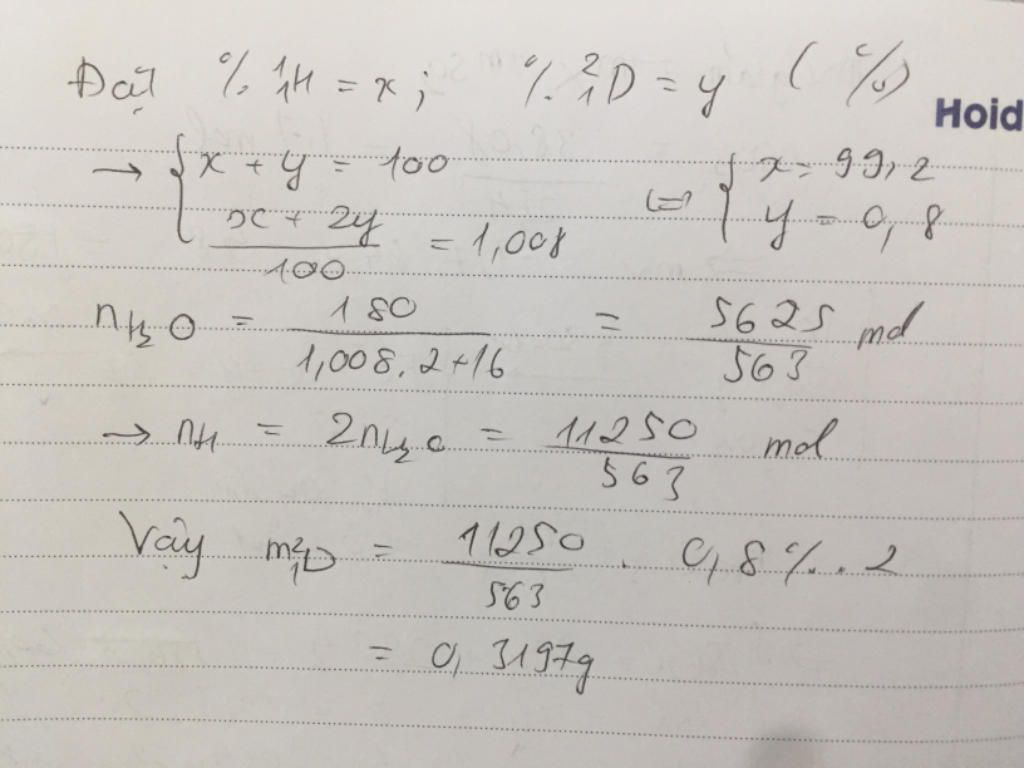 Đặt % ¹₁H = x; % ²₁D = y (%)
Hoid
→ { x + y = 100
(x + 2y)/100 = 1,008 ⇔ { x = 99,2
y = 0,8
nH₂O = 180/(1,008.2+16) = 5625/563 mol
→ nH = 2nH₂O = 11250/563 mol
Vậy m²₁D = 11250/563 . 0,8% . 2
= 0,3197g